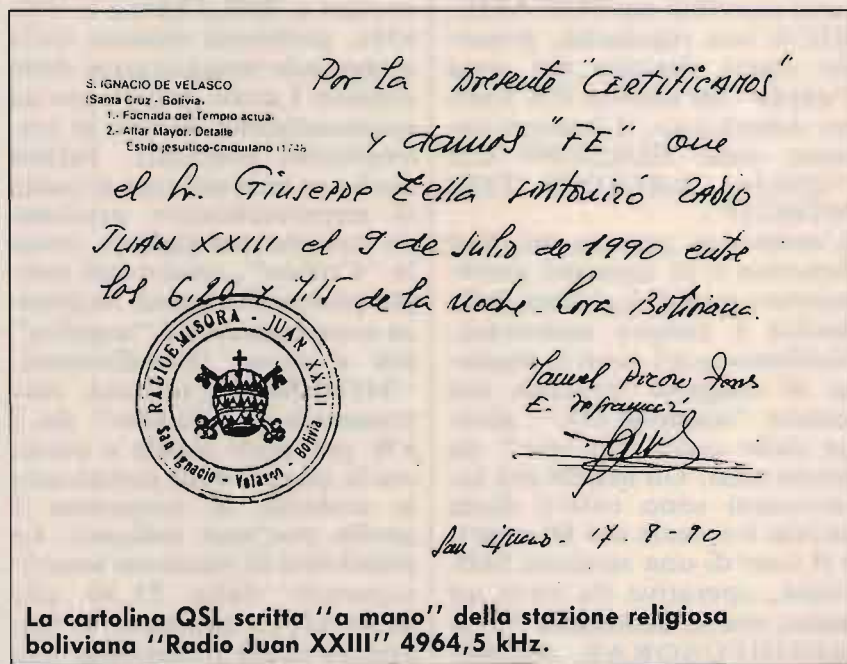 S. IGNACIO DE VELASCO
(Santa Cruz - Bolivia)
1.- Fachada del Templo actual
2.- Altar Mayor. Detalle
Estilo jesuítico-chiquitano (1748
Por la presente "CERTIFICAMOS"
y damos "FE" que
el Sr. Giuseppe Zella sintonizó RADIO
JUAN XXIII el 9 de Julio de 1990 entre
las 6,20 y 7,15 de la noche - hora Boliviana.
RADIOEMISORA - JUAN XXIII
San Ignacio - Velasco - Bolivia
San Ignacio - 17. 8 - 90
La cartolina QSL scritta "a mano" della stazione religiosa
boliviana "Radio Juan XXIII" 4964,5 kHz.